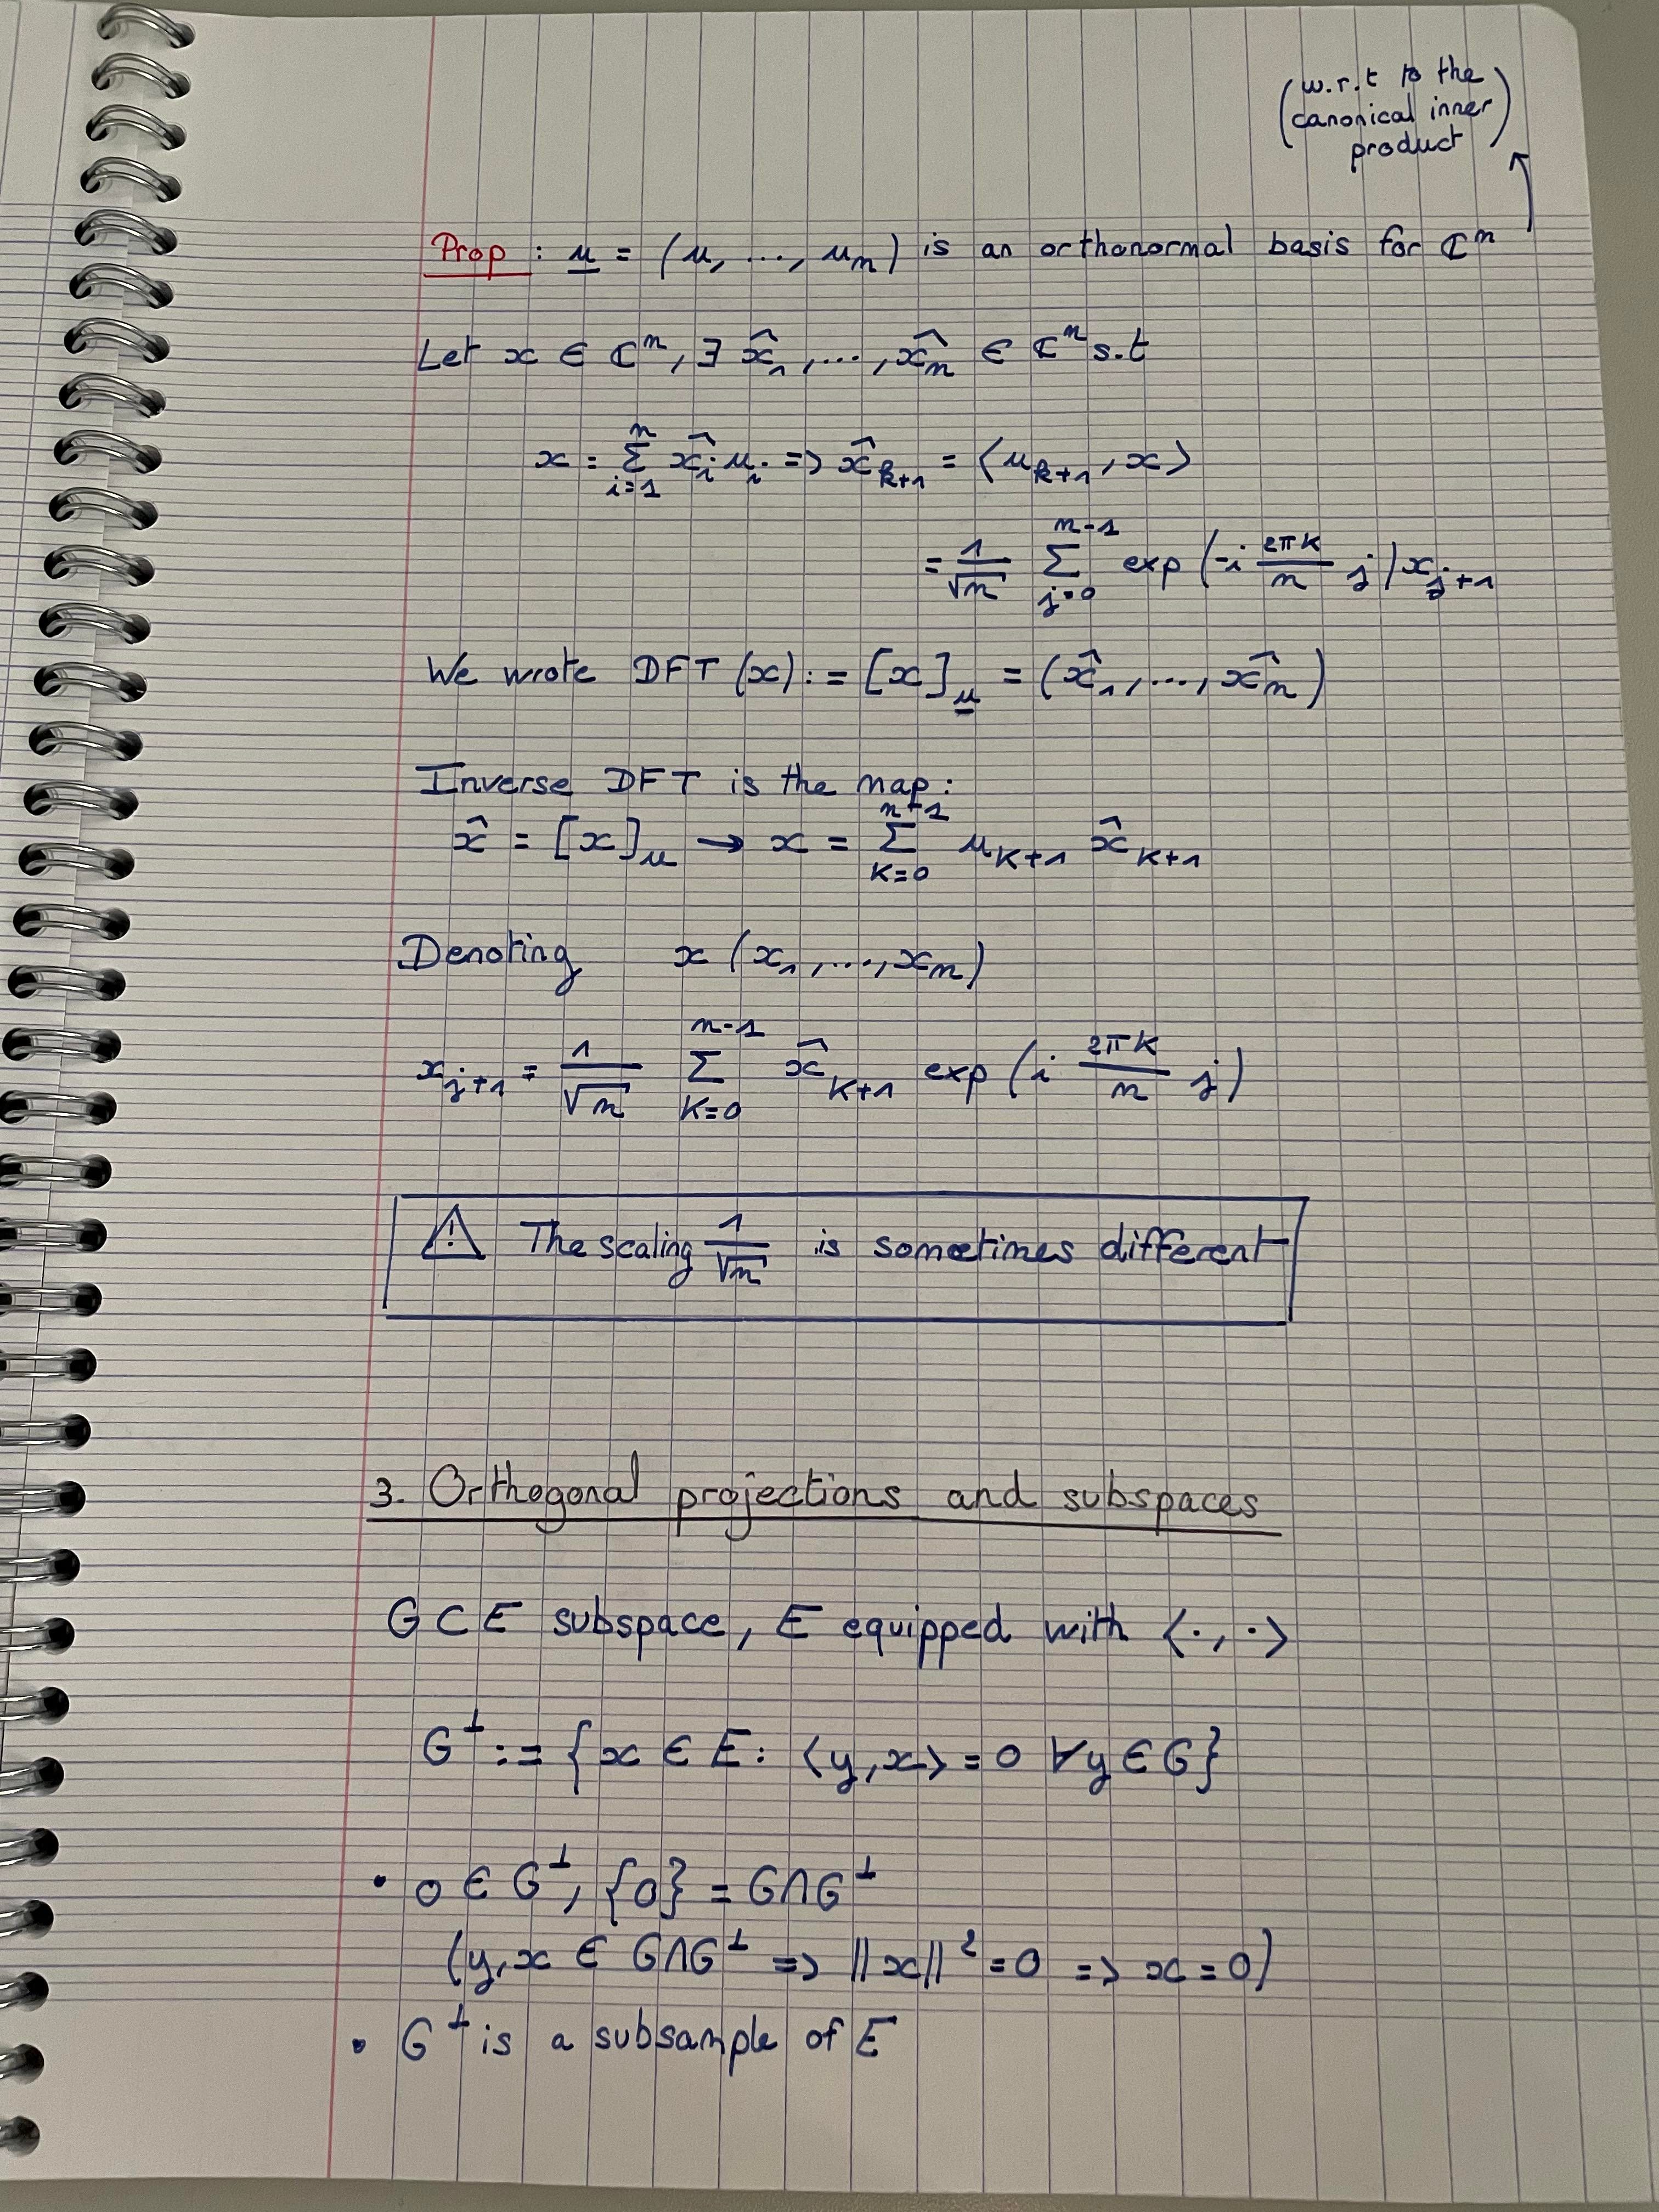 (w.r.t to the
canonical inner
product)
Prop : u = (u, ..., uₙ) is an orthonormal basis for ℂⁿ
Let x ∈ ℂⁿ, ∃ x̂₁, ..., x̂ₙ ∈ ℂⁿ s.t
x = Σ_{i=1}^{n} x̂ᵢ uᵢ => x̂_{k+1} = ⟨u_{k+1}, x⟩
= 1/√n Σ_{j=0}^{n-1} exp(-i 2πk/n j) x_{j+1}
We wrote DFT (x) := [x]_u = (x̂₁, ..., x̂ₙ)
Inverse DFT is the map :
x̂ = [x]_u → x = Σ_{k=0}^{n-1} u_{k+1} x̂_{k+1}
Denoting x (x₁, ..., xₙ)
x_{j+1} = 1/√n Σ_{k=0}^{n-1} x̂_{k+1} exp(i 2πk/n j)
⚠ The scaling 1/√n is sometimes different
3. Orthogonal projections and subspaces
G ⊂ E subspace, E equipped with ⟨·, ·⟩
G^⊥ := {x ∈ E : ⟨y, x⟩ = 0 ∀y ∈ G}
• 0 ∈ G^⊥, {0} = G∩G^⊥
(y, x ∈ G∩G^⊥ => ||x||² = 0 => x = 0)
• G^⊥ is a subsample of E